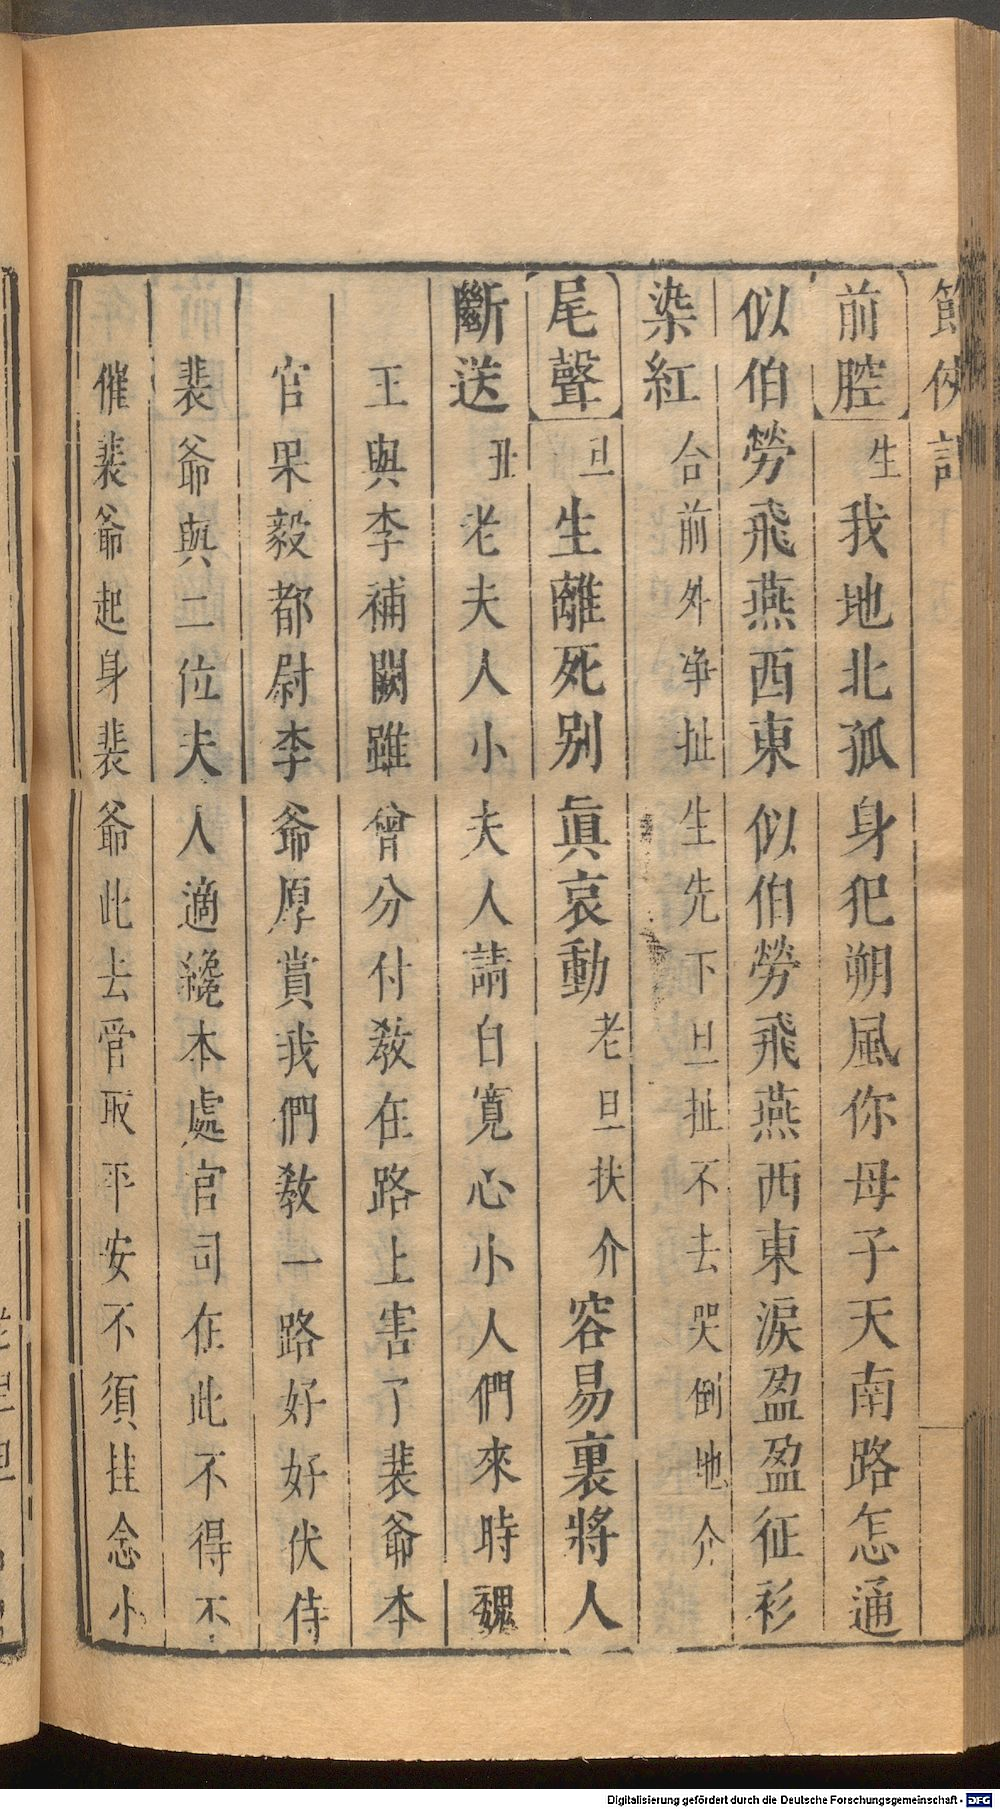 節俠記
前腔 生 我地北孤身犯朔風你母子天南路怎通
似伯勞飛燕西東似伯勞飛燕西東淚盈盈征衫
染紅 合前外净扯生先下旦扯不去哭倒地介
尾聲 旦 生離死別眞哀動 老旦扶介 容易裏將人
斷送 丑 老夫人小夫人請自寛心小人們來時魏
王與李補闕雖曾分付教在路上害了裴爺本
官果毅都尉李爺厚賞我們教一路好好伏侍
裴爺與二位夫人適纔本處官司在此不得不
催裴爺起身裴爺此去管取平安不須挂念小
Digitalisierung gefördert durch die Deutsche Forschungsgemeinschaft - DFG